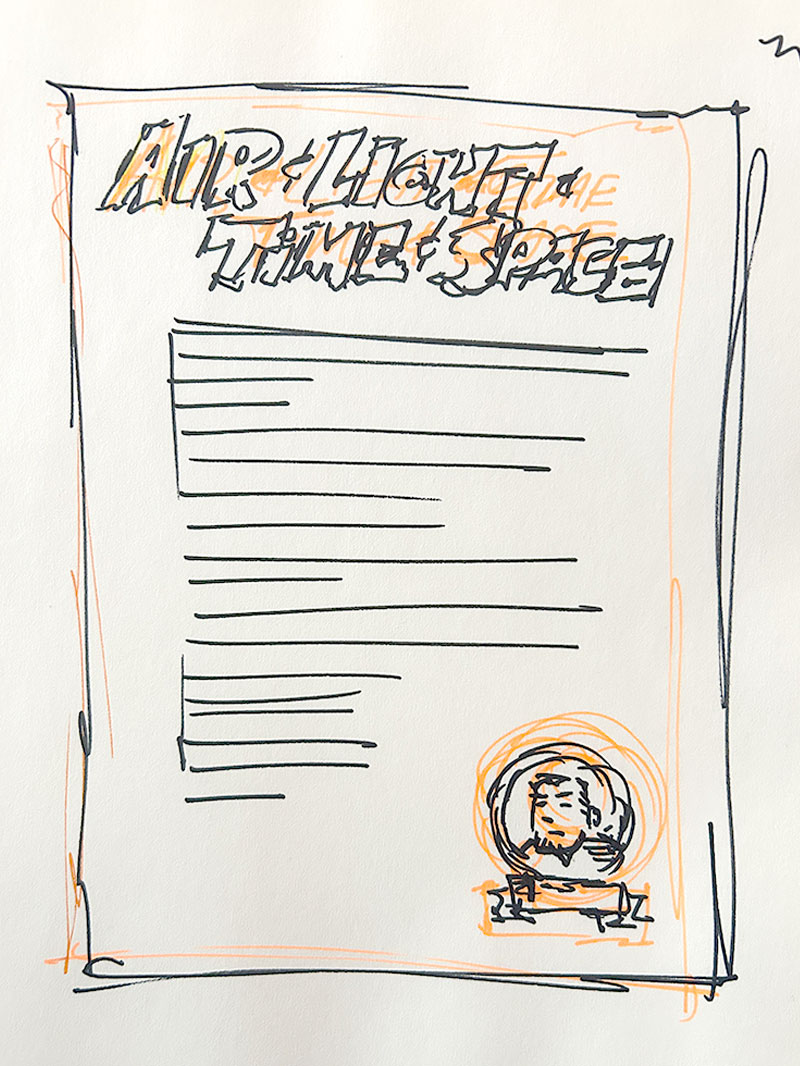 AIR & LIGHT &
TIME & SPACE